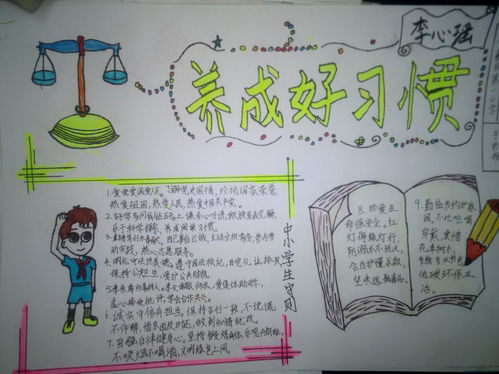 李心瑶
养成好习惯
1.爱党爱国爱人民。了解党史国情，珍视国家荣誉，
热爱祖国，热爱人民，热爱中国共产党。
2.好学多问肯钻研。上课专心听讲，积极发表见解，
乐于科学探索，养成阅读习惯。
3.勤劳笃行乐奉献。自己事自己做，主动分担家务，参与劳
动实践，热心志愿服务。
4.明礼守法讲美德。遵守国法校纪，自觉礼让排队，
保持公共卫生，爱护公共财物。
5.孝亲尊师善待人。孝父母敬师长，爱集体助同学，
虚心接受批评，学会合作共处。
6.诚实守信有担当。保持言行一致，不说谎
不作弊，借东西及时还，做到知错就改。
7.自强自律健身心。坚持锻炼身体，乐观开朗向上，
不吸烟不喝酒，文明绿色上网。
中小学生守则
8.珍爱生
命保安全。红
灯停绿灯行，
防溺水不玩火，
会自护懂求救，
坚决远离毒品。
9.勤俭节约护家
园。不比吃喝
穿戴，爱惜
花草树木，
节粮节水节电，
低碳环保生
活。